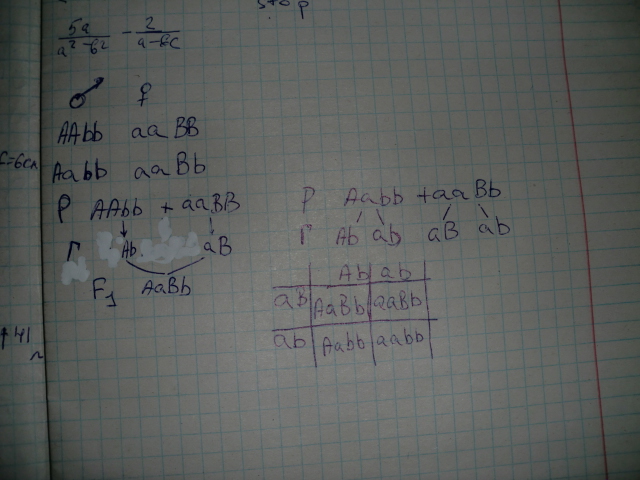 stop
5a/a²-b² - 2/a-bc
♂ ♀
AAbb aaBB
Aabb aaBb
P AAbb + aaBB
Г Ab aB
F₁ AaBb
P Aabb + aaBb
Г Ab ab aB ab
Ab ab
aB AaBb aaBb
ab Aabb aabb